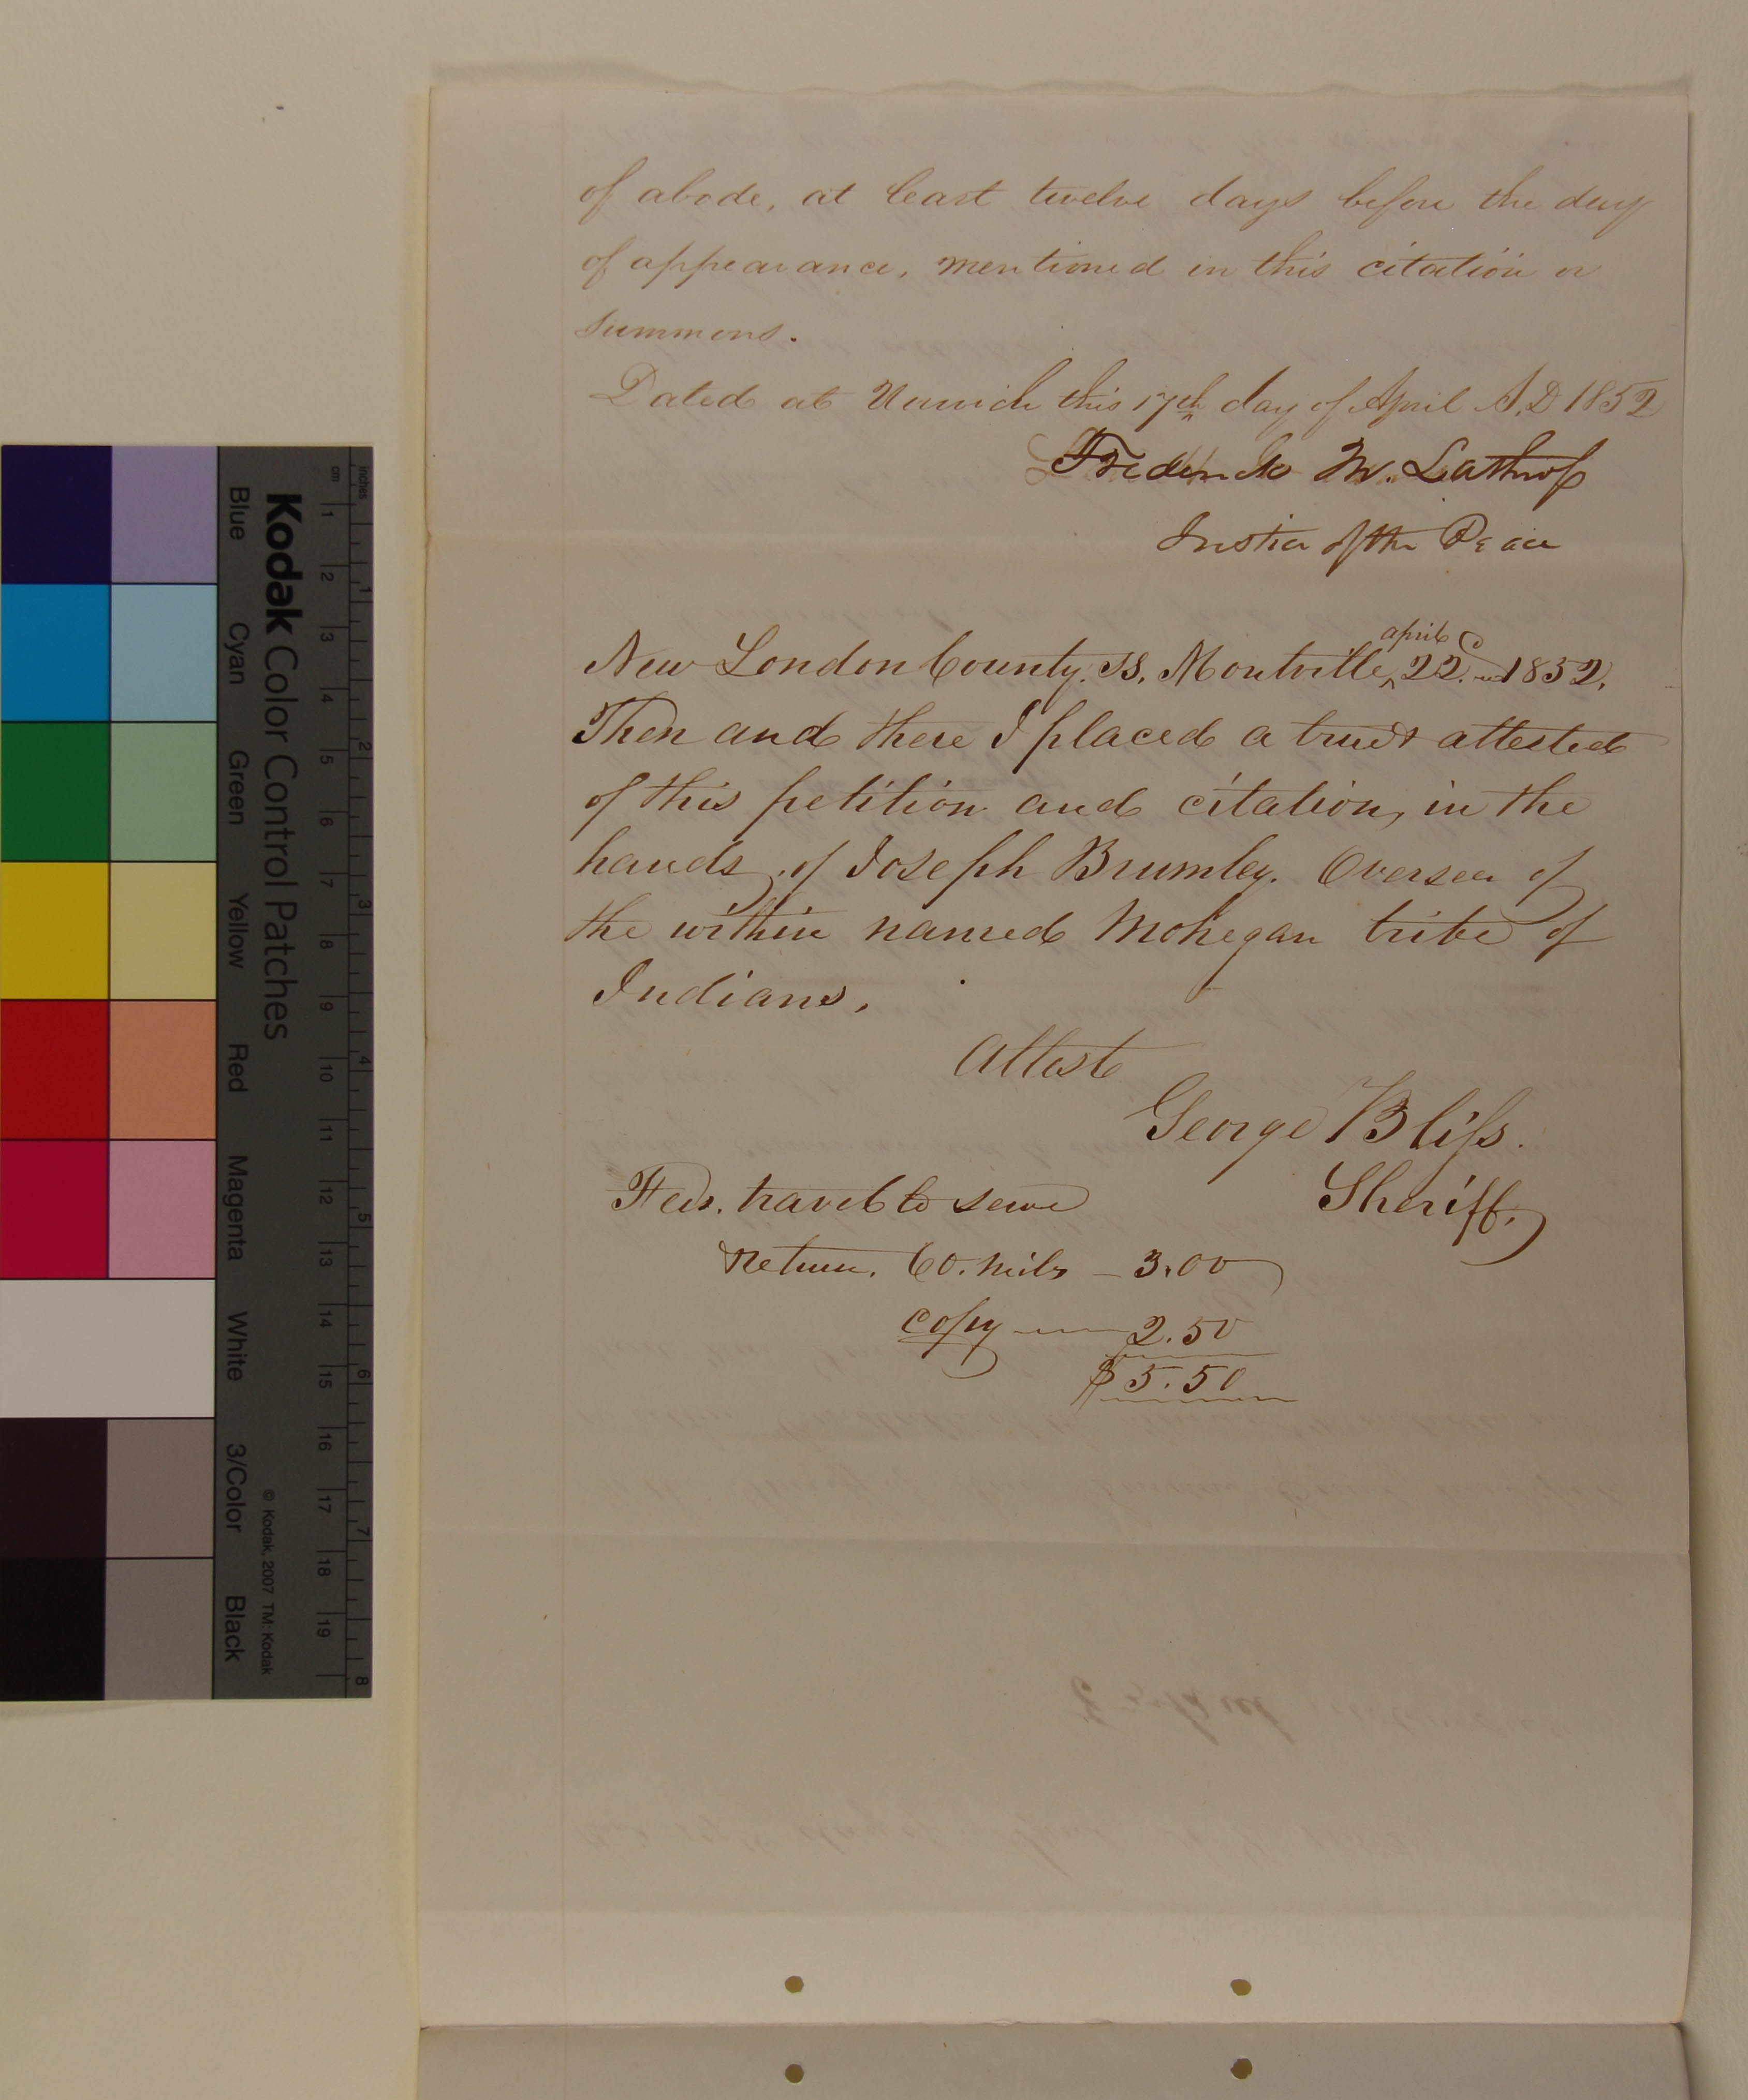 of abode, at least twelve days before the day
of appearance, mentioned in this citation or
summons.
Dated at Norwich this 17th day of April A.D 1852
Frederick M. Lathrop
Justice of the Peace
New London County. SS. Montville, april 22. 1852.
Then and there I placed a true & attested
of this petition and citation, in the
hands, of Joseph Brumley. Overseer of
the within named Mohegan tribe of
Indians,
Attest
George Bliss.
Sheriff.
Fees. travel to serve
return. 60. miles - 3.00
copy 2.50
$5.50
Kodak Color Control Patches
Blue Cyan Green Yellow Red Magenta White 3/Color Black
© Kodak, 2007 TM: Kodak
inches 1 2 3 4 5 6 7 8
cm 1 2 3 4 5 6 7 8 9 10 11 12 13 14 15 16 17 18 19